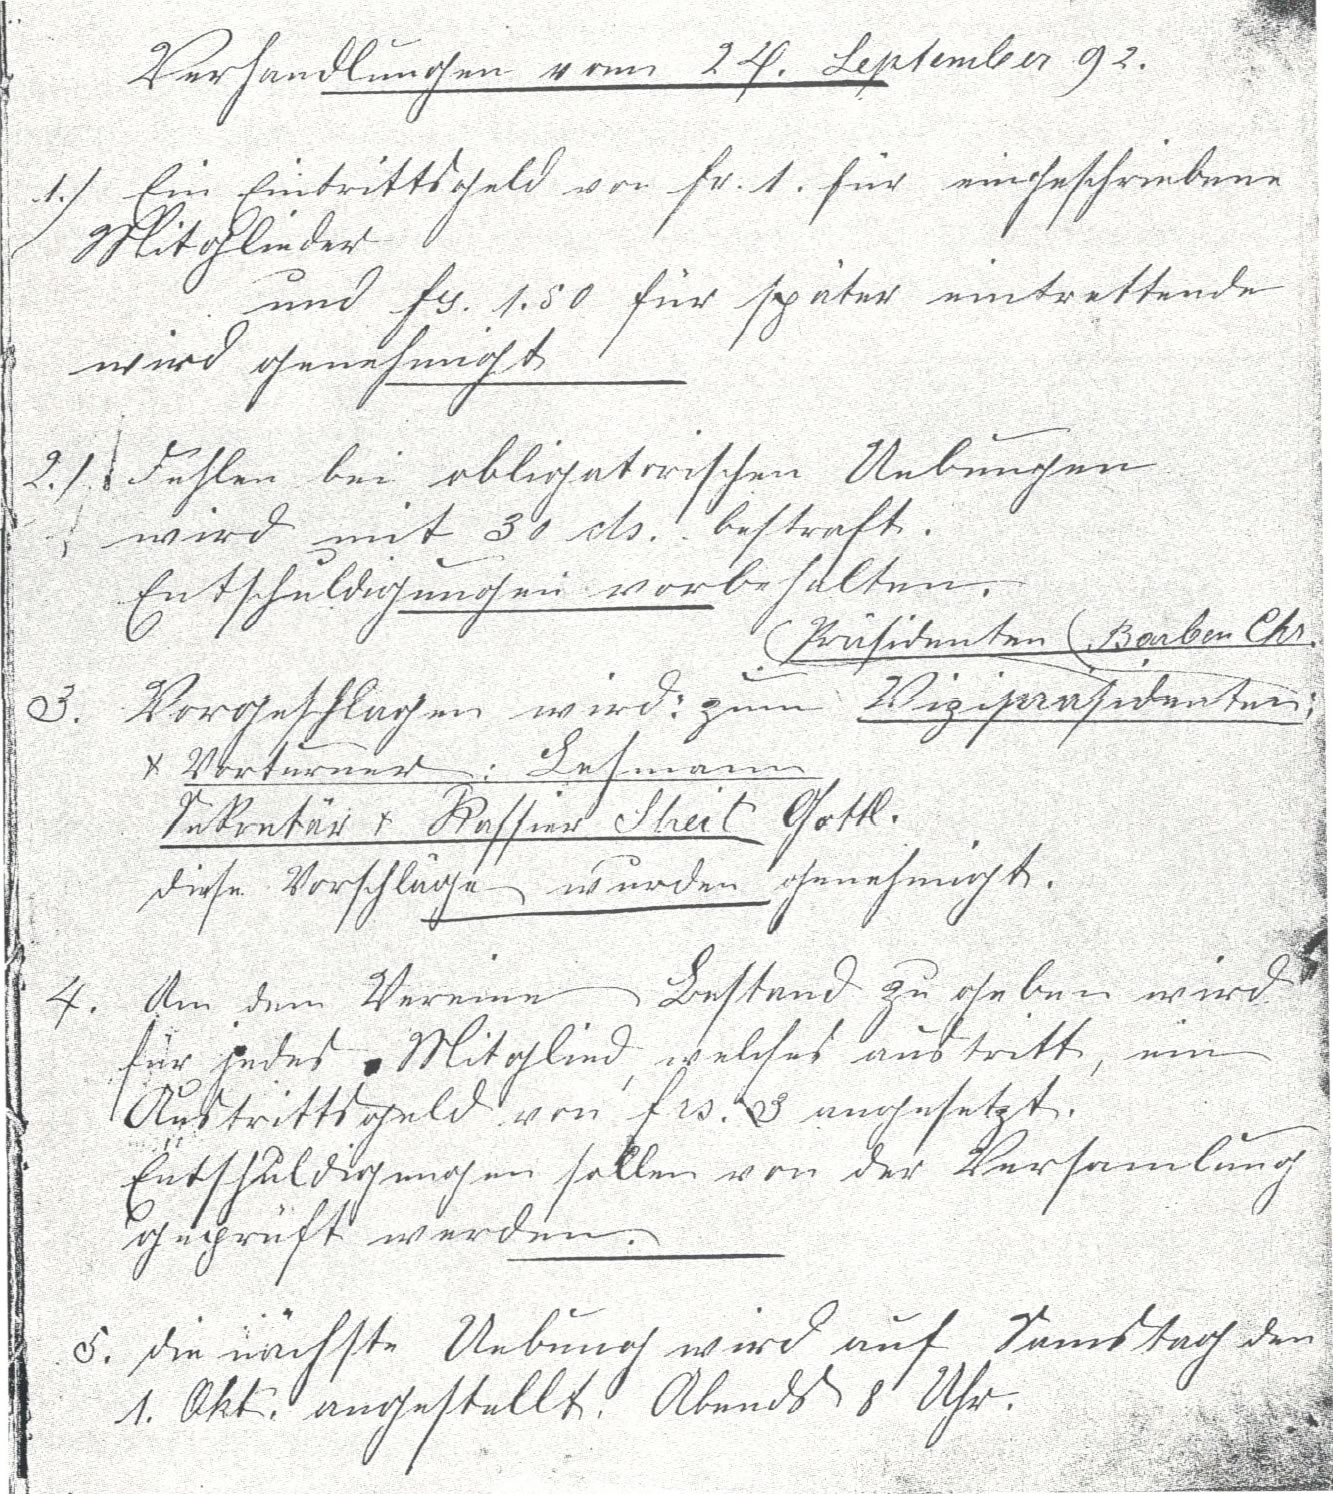 Verhandlungen vom 24. September 92.
1.) Ein Eintrittsgeld von fr. 1. für eingeschriebene
Mitglieder
und frs. 1.50 für später eintrettende
wird genehmigt
2.) Fehlen bei obligatorischen Uebungen
wird mit 30 cts. bestraft.
Entschuldigungen vorbehalten.
(Präsidenten (Barben Chr.
3. Vorgeschlagen wird: zum Vizipräsidenten;
& Vorturner: Lehmann
Sekretär & Kassier Gottl.
diese Vorschläge wurden genehmigt.
4. Um dem Vereine Bestand zu geben wird
für jedes Mitglied, welches austritt, ein
Austrittsgeld von frs. 3 angesetzt.
Entschuldigungen sollen von der Versamlung
geprüft werden.
5. die nächste Uebung wird auf Samstag den
1. Okt. angestellt. Abends 8 Uhr.